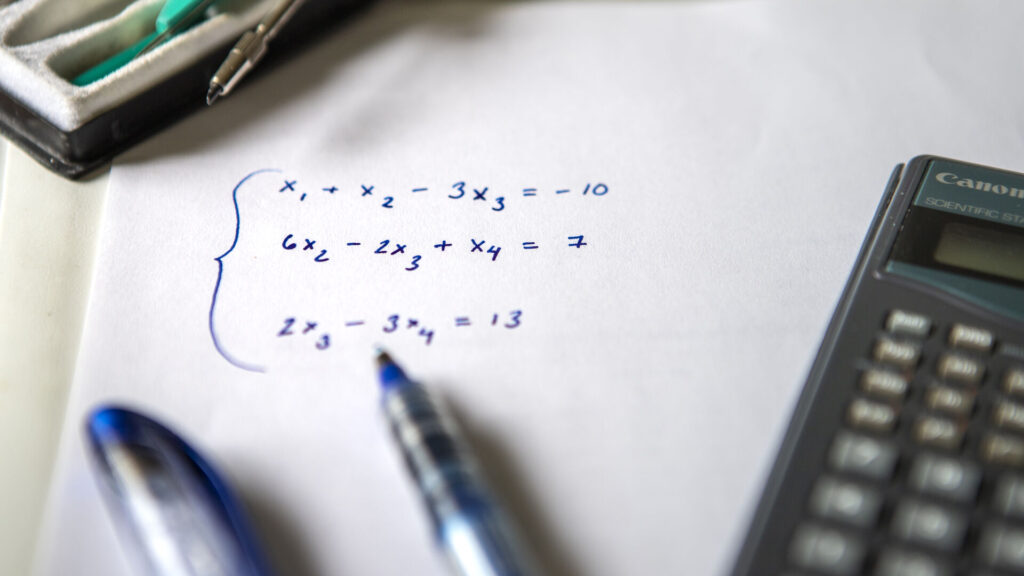 x₁ + x₂ - 3x₃ = -10
6x₂ - 2x₃ + x₄ = 7
2x₃ - 3x₄ = 13
Canon
SCIENTIFIC STA